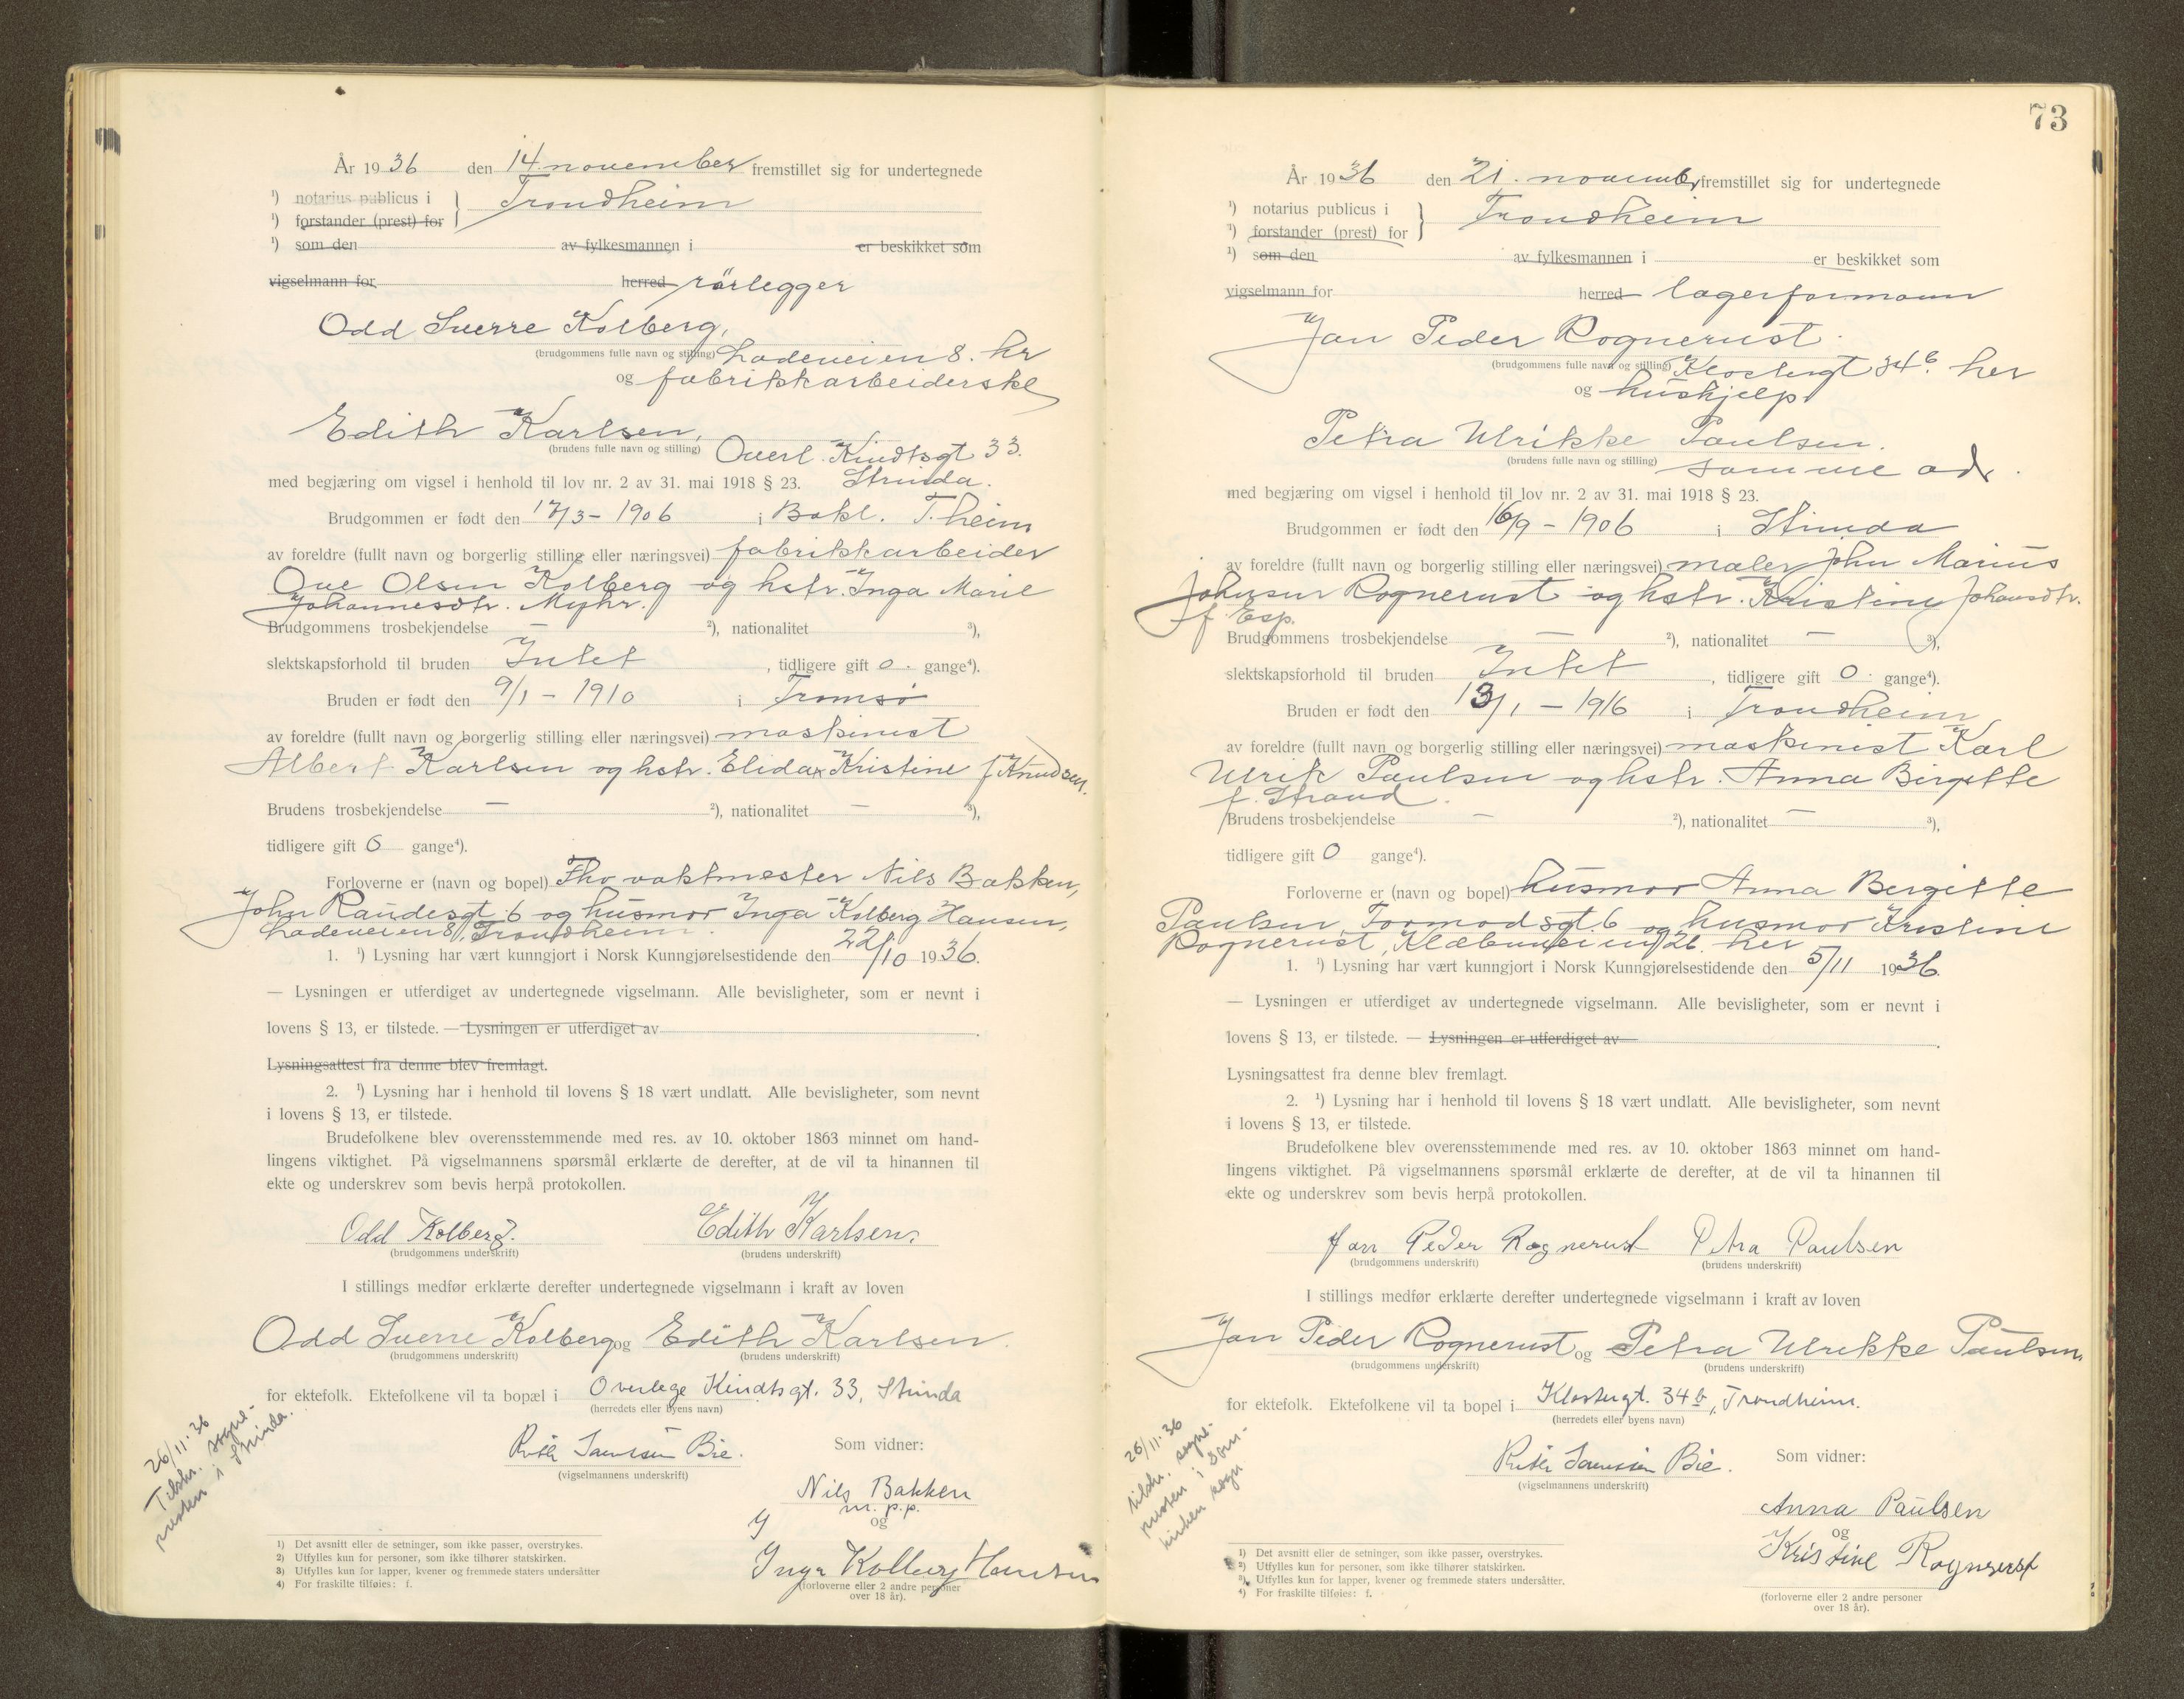 År 1936 den 14 november fremstillet sig for undertegnede
¹) notarius publicus i } Trondheim
¹) forstander (prest) for
¹) som den av fylkesmannen i er beskikket som
vigselmann for herred rörlegger
Odd Sverre Kolberg,
(brudgommens fulle navn og stilling) Ladeveien 8. hr
og fabrikkarbeiderske
Edith Karlsen,
(brudens fulle navn og stilling) Overl. Kindtsgt 33.
med begjæring om vigsel i henhold til lov nr. 2 av 31. mai 1918 § 23. Strinda.
Brudgommen er født den 17/3 - 1906 i Bakl. T.heim
av foreldre (fullt navn og borgerlig stilling eller næringsvei) fabrikkarbeider
Ove Olsen Kolberg og hstr. Inga Marie
Johannesdtr. Myhr.
Brudgommens trosbekjendelse — ²), nationalitet ³),
slektskapsforhold til bruden Intet , tidligere gift 0. gange⁴).
Bruden er født den 9/1 - 1910 i Tromsö
av foreldre (fullt navn og borgerlig stilling eller næringsvei) maskinist
Albert Karlsen og hstr. Elida Kristine f. Knudsen.
Brudens trosbekjendelse — ²), nationalitet — ³),
tidligere gift 0 gange⁴).
Forloverne er (navn og bopel) Fhv vaktmester Nils Bakken,
John Raudesgt. 6 og husmor Inga Kolberg Hansen,
Ladeveien 8, Trondheim.
1. ¹) Lysning har vært kunngjort i Norsk Kunngjørelsestidende den 22/10 1936.
— Lysningen er utferdiget av undertegnede vigselmann. Alle bevisligheter, som er nevnt i
lovens § 13, er tilstede. — Lysningen er utferdiget av .
Lysningsattest fra denne blev fremlagt.
2. ¹) Lysning har i henhold til lovens § 18 vært undlatt. Alle bevisligheter, som nevnt
i lovens § 13, er tilstede.
Brudefolkene blev overensstemmende med res. av 10. oktober 1863 minnet om hand-
lingens viktighet. På vigselmannens spørsmål erklærte de derefter, at de vil ta hinannen til
ekte og underskrev som bevis herpå protokollen.
Odd Kolberg. Edith Karlsen.
(brudgommens underskrift) (brudens underskrift)
I stillings medfør erklærte derefter undertegnede vigselmann i kraft av loven
Odd Sverre Kolberg og Edith Karlsen.
(brudgommens underskrift) (brudens underskrift)
for ektefolk. Ektefolkene vil ta bopæl i Overlege Kindtsgt. 33, Strinda
(herredets eller byens navn)
26/11-36
Tilskr. sogne-
presten i Strinda.
Bie. Som vidner:
(vigselmannens underskrift)
Nils Bakken
m. p. p.
og
Inga Kolberg Hansen
(forloverne eller 2 andre personer
over 18 år).
1) Det avsnitt eller de setninger, som ikke passer, overstrykes.
2) Utfylles kun for personer, som ikke tilhører statskirken.
3) Utfylles kun for lapper, kvener og fremmede staters undersåtter
4) For fraskilte tilføies: f.
73
År 1936 den 21. november fremstillet sig for undertegnede
¹) notarius publicus i } Trondheim
¹) forstander (prest) for
¹) som den av fylkesmannen i er beskikket som
vigselmann for herred lagerformann
Jan Peder Rognerust.
(brudgommens fulle navn og stilling) Klostergt 34b. her
og hushjelp
Petra Ulrikke Paulsen.
(brudens fulle navn og stilling) samme adr.
med begjæring om vigsel i henhold til lov nr. 2 av 31. mai 1918 § 23.
Brudgommen er født den 16/9 - 1906 i Strinda
av foreldre (fullt navn og borgerlig stilling eller næringsvei) maler John Marius
Johnsen Rognerust og hstr. Kristine Johansdtr.
f Esp.
Brudgommens trosbekjendelse — ²), nationalitet — ³),
slektskapsforhold til bruden Intet , tidligere gift 0. gange⁴).
Bruden er født den 13/1 - 1916 i Trondheim
av foreldre (fullt navn og borgerlig stilling eller næringsvei) maskinist Karl
Ulrik Paulsen og hstr. Anna Birgitte
f. Strand.
Brudens trosbekjendelse — ²), nationalitet — ³),
tidligere gift 0 gange⁴).
Forloverne er (navn og bopel) husmor Anna Bergitte
Paulsen, Tormodsgt. 6 og husmor Kristine
Rognerust, Klæbuveien 26. her
1. ¹) Lysning har vært kunngjort i Norsk Kunngjørelsestidende den 5/11 1936.
— Lysningen er utferdiget av undertegnede vigselmann. Alle bevisligheter, som er nevnt i
lovens § 13, er tilstede. — Lysningen er utferdiget av .
Lysningsattest fra denne blev fremlagt.
2. ¹) Lysning har i henhold til lovens § 18 vært undlatt. Alle bevisligheter, som nevnt
i lovens § 13, er tilstede.
Brudefolkene blev overensstemmende med res. av 10. oktober 1863 minnet om hand-
lingens viktighet. På vigselmannens spørsmål erklærte de derefter, at de vil ta hinannen til
ekte og underskrev som bevis herpå protokollen.
Jan Peder Rognerust Petra Paulsen
(brudgommens underskrift) (brudens underskrift)
I stillings medfør erklærte derefter undertegnede vigselmann i kraft av loven
Jan Peder Rognerust og Petra Ulrikke Paulsen,
(brudgommens underskrift) (brudens underskrift)
for ektefolk. Ektefolkene vil ta bopel i Klostergt. 34b, Trondheim.
(herredets eller byens navn)
26/11-36
tilskr. sogne-
presten i Dom-
kirken sogn
Bie. Som vidner:
(vigselmannens underskrift)
Anna Paulsen
og
Kristine Rognerust
(forloverne eller 2 andre personer
over 18 år).
1) Det avsnitt eller de setninger, som ikke passer, overstrykes.
2) Utfylles kun for personer, som ikke tilhører statskirken.
3) Utfylles kun for lapper, kvener og fremmede staters undersåtter.
4) For fraskilte tilføies: f.